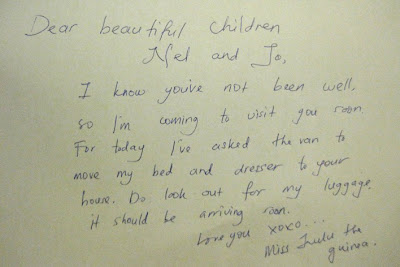 Dear beautiful children
Nel and Jo,
I know you've not been well,
so I'm coming to visit you soon
For today I've asked the van to
move my bed and dresser to your
house. Do look out for my luggage.
it should be arriving soon.
Love you xoxo...
Miss Lulu the
guinea.